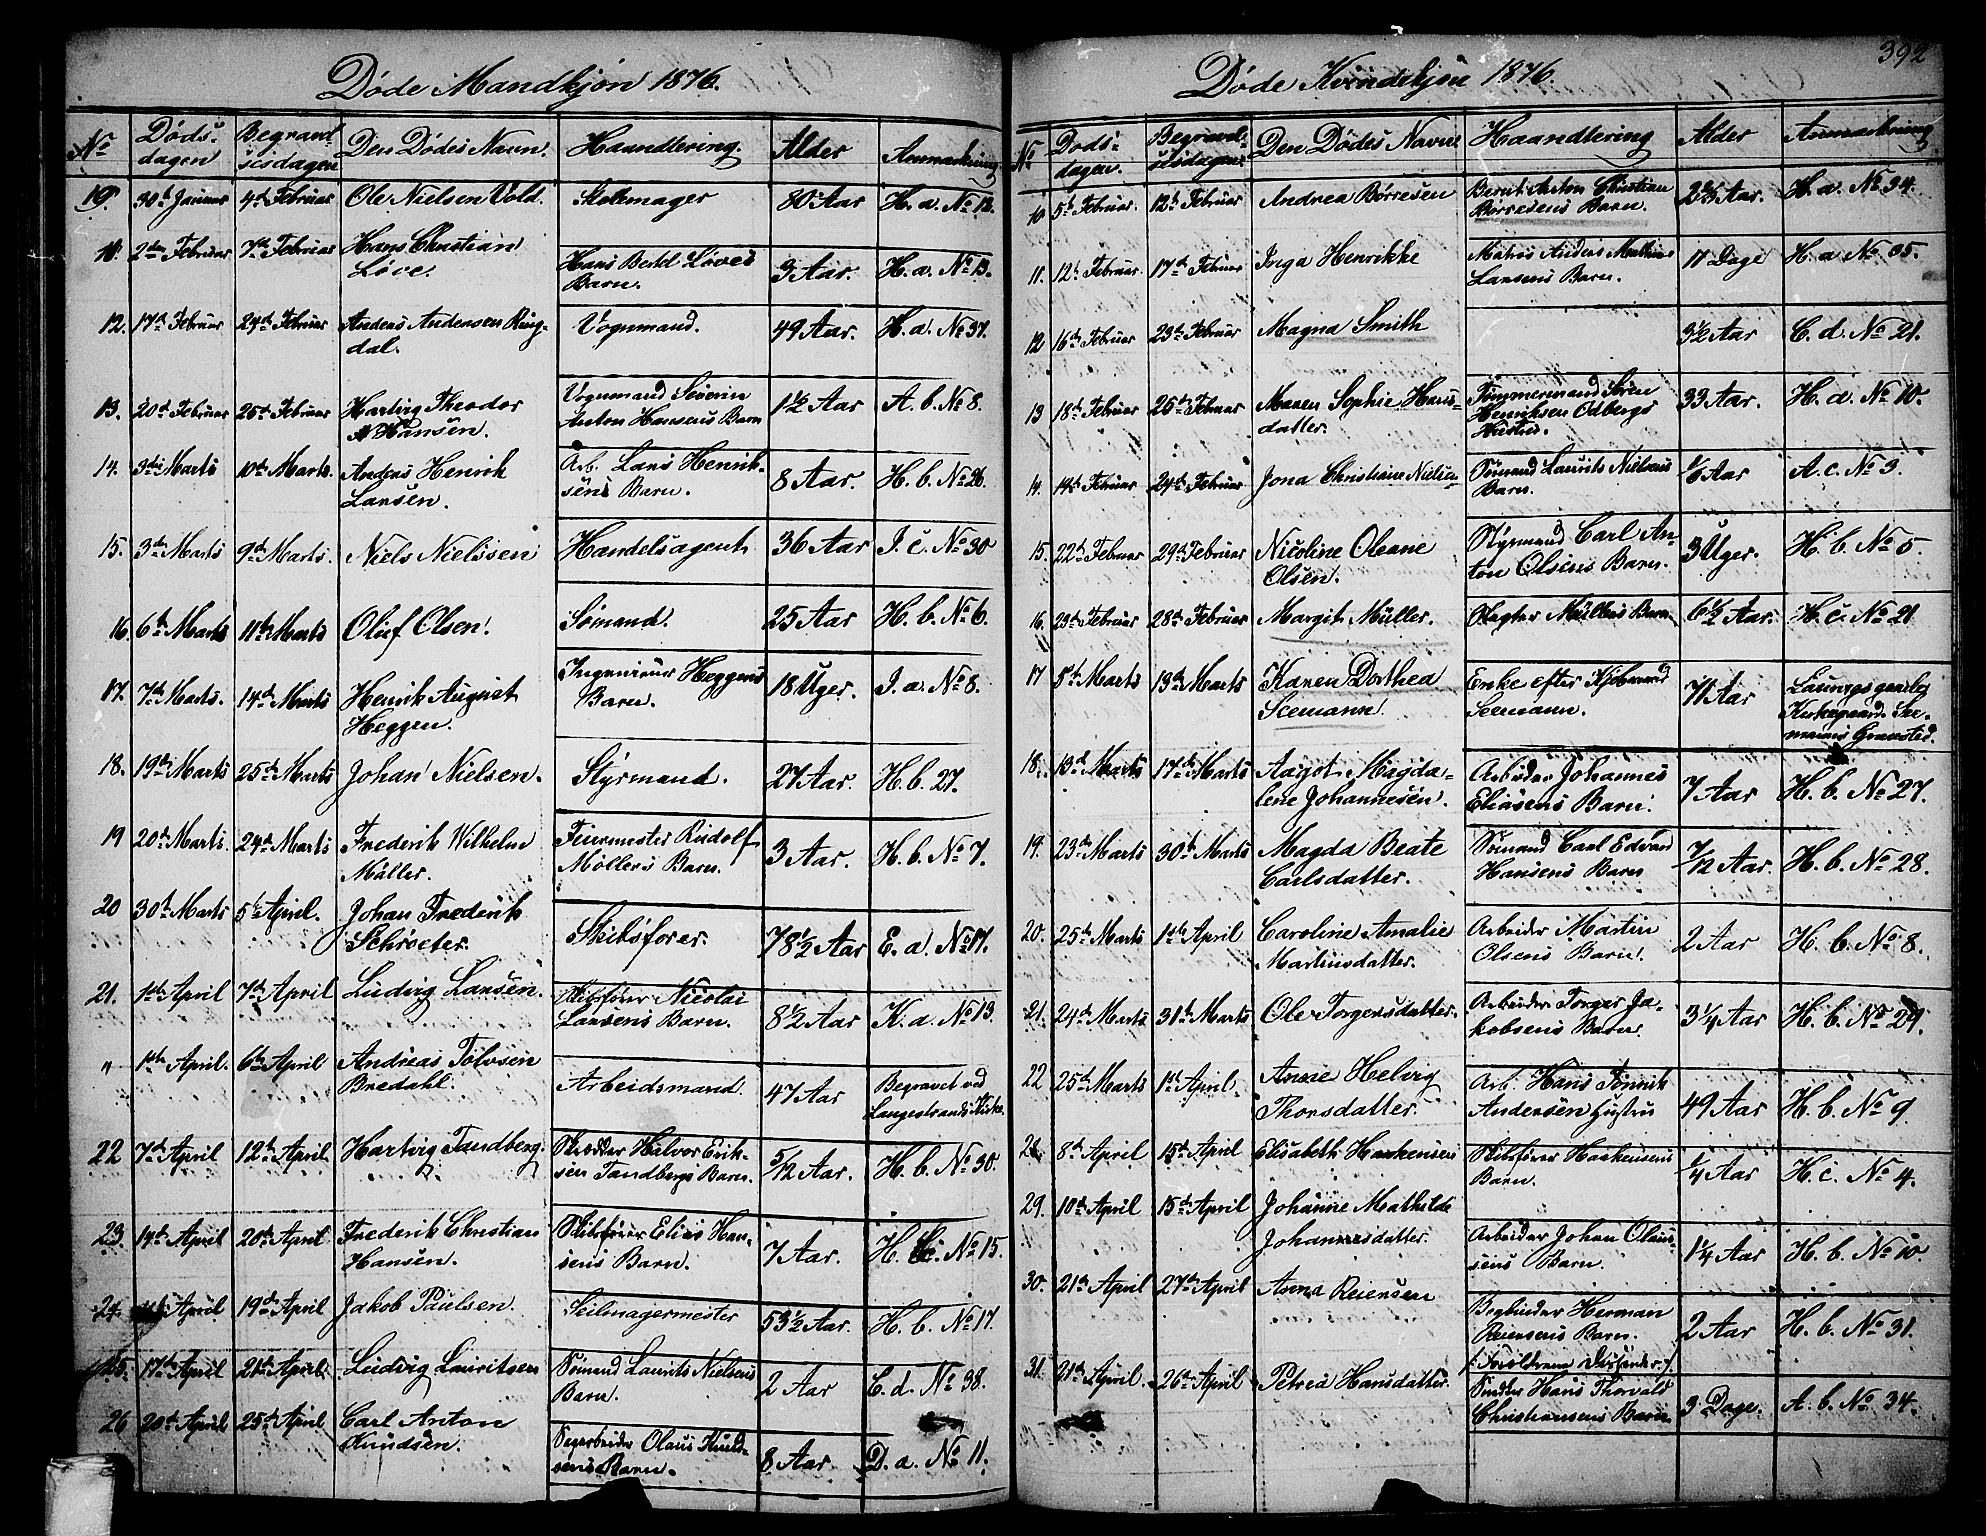 Døde Mandkjøn 1876.
No Dødsdagen Begravelsesdagen Den Dødes Navn. Haandtering. Alder Anmærkning
19. 30d Januar 4d Februar Ole Nielsen Vold. 80 Aar H. a. No 12.
10. 2den Februar 7de Februar Hans Christian
Løve. Hans Bertel Løves
Barn. 3 Aar. H. a. No 13.
12. 17d Februar 24d Februar Anders Andersen Ring-
dal. Vognmand. 49 Aar. H. a. No 37.
13. 20d Februar 26d Februar Hartvig Theodor
Hansen. Vognmand Søverin
Anton Hansens Barn 1 1/2 Aar A. b. No 8.
14. 3die Marts 10de Marts. Andreas Henrik
Larsen. Arb. Lars Henrik-
sens Barn. 8 Aar. H. b. No 26.
15. 3die Marts 9de Marts. Niels Nielssen Handelsagent 36 Aar I. c. No 30
16. 6te Marts 11te Marts Oluf Olsen. Sømand. 25 Aar H. b. No 6.
17. 7de Marts. 14de Marts Henrik August
Heggen. Ingenieur Heggens
Barn. 18 Uger. I. a. No 8.
18. 19de Marts 25de Marts Johan Nielsen. Styrmand. 27 Aar. H. b. 27.
19 20de Marts. 24de Marts Frederik Wilhelm
Møller. Feiermester Rudolf
Møllers Barn. 3 Aar. H. b. No 7.
20 30te Marts 5te April. Johan Frederik
Schrøeter. Skibsfører. 78 1/2 Aar E. a. No 17.
21. 1ste April 7de April Ludvig Larsen. Skibsfører Nicolai
Larsens Barn. 8 1/2 Aar K. a. No 13.
" 1ste April. 6te April Andreas Tolvsen
Bredahl. Arbeidsmand. 47 Aar Begravet ved
Langestrands Kirke.
22 7de April 12te April Hartvig Tandberg. Skrædder Hilvor Erik-
sen Tandbergs Barn. 5/12 Aar. H. b. No 30.
23. 14de April 20de April Frederik Christian
Hansen. Skibsfører Elias Han-
sens Barn. 7 Aar. H. c. No 15.
24. April 19de April Jakob Paulsen. Seilmagermester 53 1/2 Aar. H. b. No 17.
25. 17de April 21de April Ludvig Lauritsen Sømand Laurits Nielsens
Barn. 2 Aar C. d. No 38.
26 20de April 25de April Carl Anton
Knudsen. Olaus Knud-
sens Barn. 8 Aar D. a. No 11.
392
Døde Kvindekjøn 1876.
No Dødsdagen. Begravelsesdagen Den Dødes Navn Haandtering Alder Anmærkning
10. 5te Februar. 12te Februar Andrea Børresen Bernt Anton Christian
Børresens Barn. 2 2/3 Aar. H. a. No 34.
11. 12te Februar 17de Februar Inga Henrikke Matros Anders Mathias
Larsens Barn. 17 Dage H. a No 35.
12 16de Februar 23de Februar Magna Smith 3 1/2 Aar C. d. No 21.
13 18de Februar 25de Februar Maren Sophie Hans-
datter. Tømmermand Søren
Henriksen Odbergs
Hustru. 33 Aar. H. a. No 10.
14. 14de Februar 24de Februar Jona Christiane Nielsen Sømand Laurits Nielsens
Barn. Aar A. c. No 3.
15. 22de Februar 29de Februar Nicoline Oleane
Olsen. Styrmand Carl An-
ton Olsens Barn. 3 Uger. H. b. No 5.
16. 23de Februar 28de Februar Margit Müller. Slagter Müllers Barn. 6 1/2 Aar. H. c. No 21
17 8de Marts 13de Marts Karen Dorthea
Seemann. Enke efter Kjøbmand
Seemann. 71 Aar Laurvigs gamle
Kirkegaard. See-
manns Gravsted.
18. 13de Marts 17de Marts Aagot Magda-
lene Johannesen. Arbeider Johannes
Eliasens Barn. 7 Aar H. b. No 27.
19. 23de Marts 30te Marts Magda Beate
Carlsdatter. Sømand Carl Edvard
Hansens Barn 7/12 Aar. H. b. No 28.
20. 25de Marts 1ste April Caroline Amalie
Martinsdatter. Arbeider Martin
Olsens Barn. 2 Aar H. b. No 8.
21. 24de Marts 31te Marts Ole Torgersdatter. Arbeider Torger Ja-
kobsens Barn. 3 1/4 Aar H. b. No 29.
22 25de Marts 1ste April. Anne Helvig
Thorsdatter. Arb. Hans
Andersens Hustru 49 Aar H. b. No 9.
8de April 15de April Elisabeth Haakensen Skibsfører Haakensens
Barn. 1/4 Aar H. c. No 4.
29. 10de April 15de April Johanne Mathilde
Johannesdatter. Arbeider Johan Olaus-
sens Barn. 1 1/4 Aar H. b. No 10.
30. 21de April 27de April Anna Reiersen Herman
Reiersens Barn. 2 Aar H. b. No 31.
31. 21de April. 26de April Petrea Hansdatter.
Hans Thorvald
Christiansens Barn. 3 Dage. A. b. No 34.